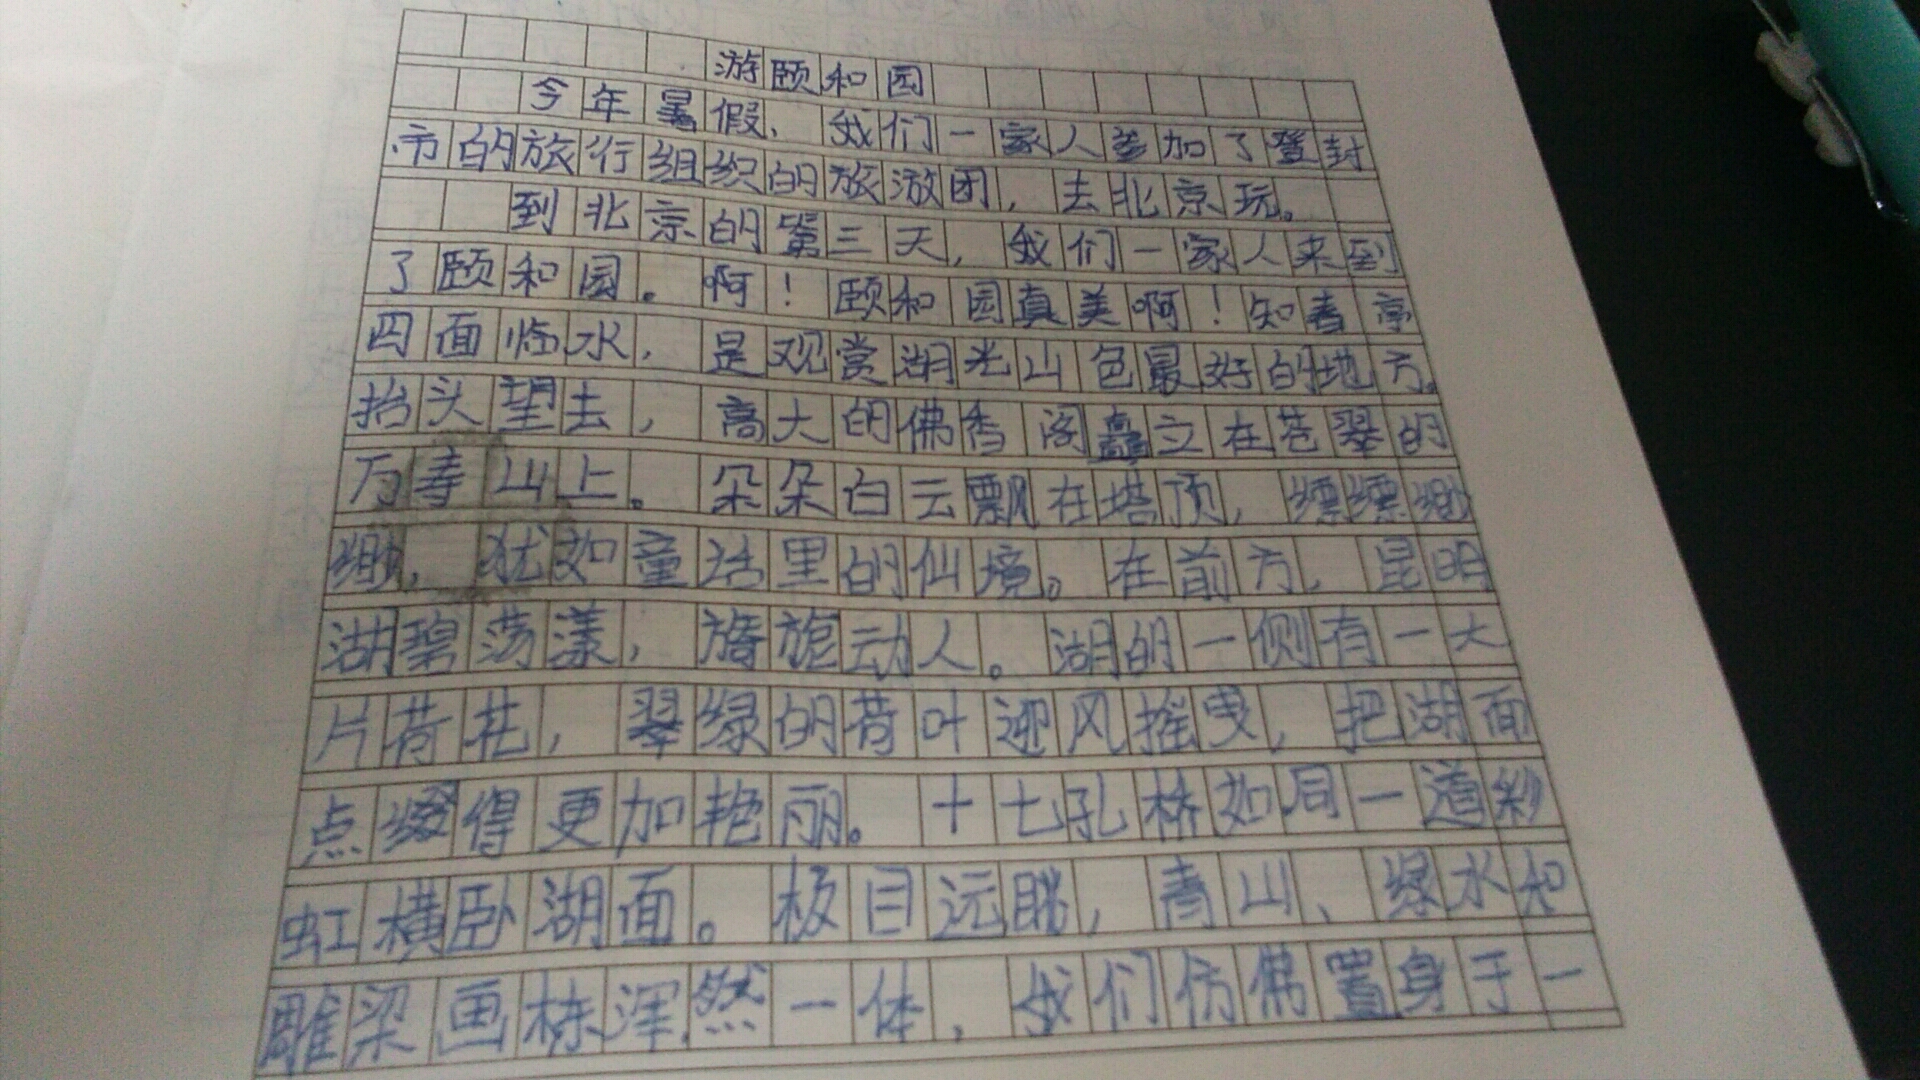 游颐和园
今年暑假，我们一家人参加了登封
市的旅行组织的旅游团，去北京玩。
到北京的第三天，我们一家人来到
了颐和园。啊！颐和园真美啊！知春亭
四面临水，是观赏湖光山色最好的地方。
抬头望去，高大的佛香阁矗立在苍翠的
万寿山上。朵朵白云飘在塔顶，缥缥缈
缈，犹如童话里的仙境。在前方，昆明
湖碧荡漾，旖旎动人。湖的一侧有一大
片荷花，翠绿的荷叶迎风摇曳，把湖面
点缀得更加艳丽。十七孔桥如同一道彩
虹横卧湖面。极目远眺，青山、绿水和
雕梁画栋浑然一体，我们仿佛置身于一